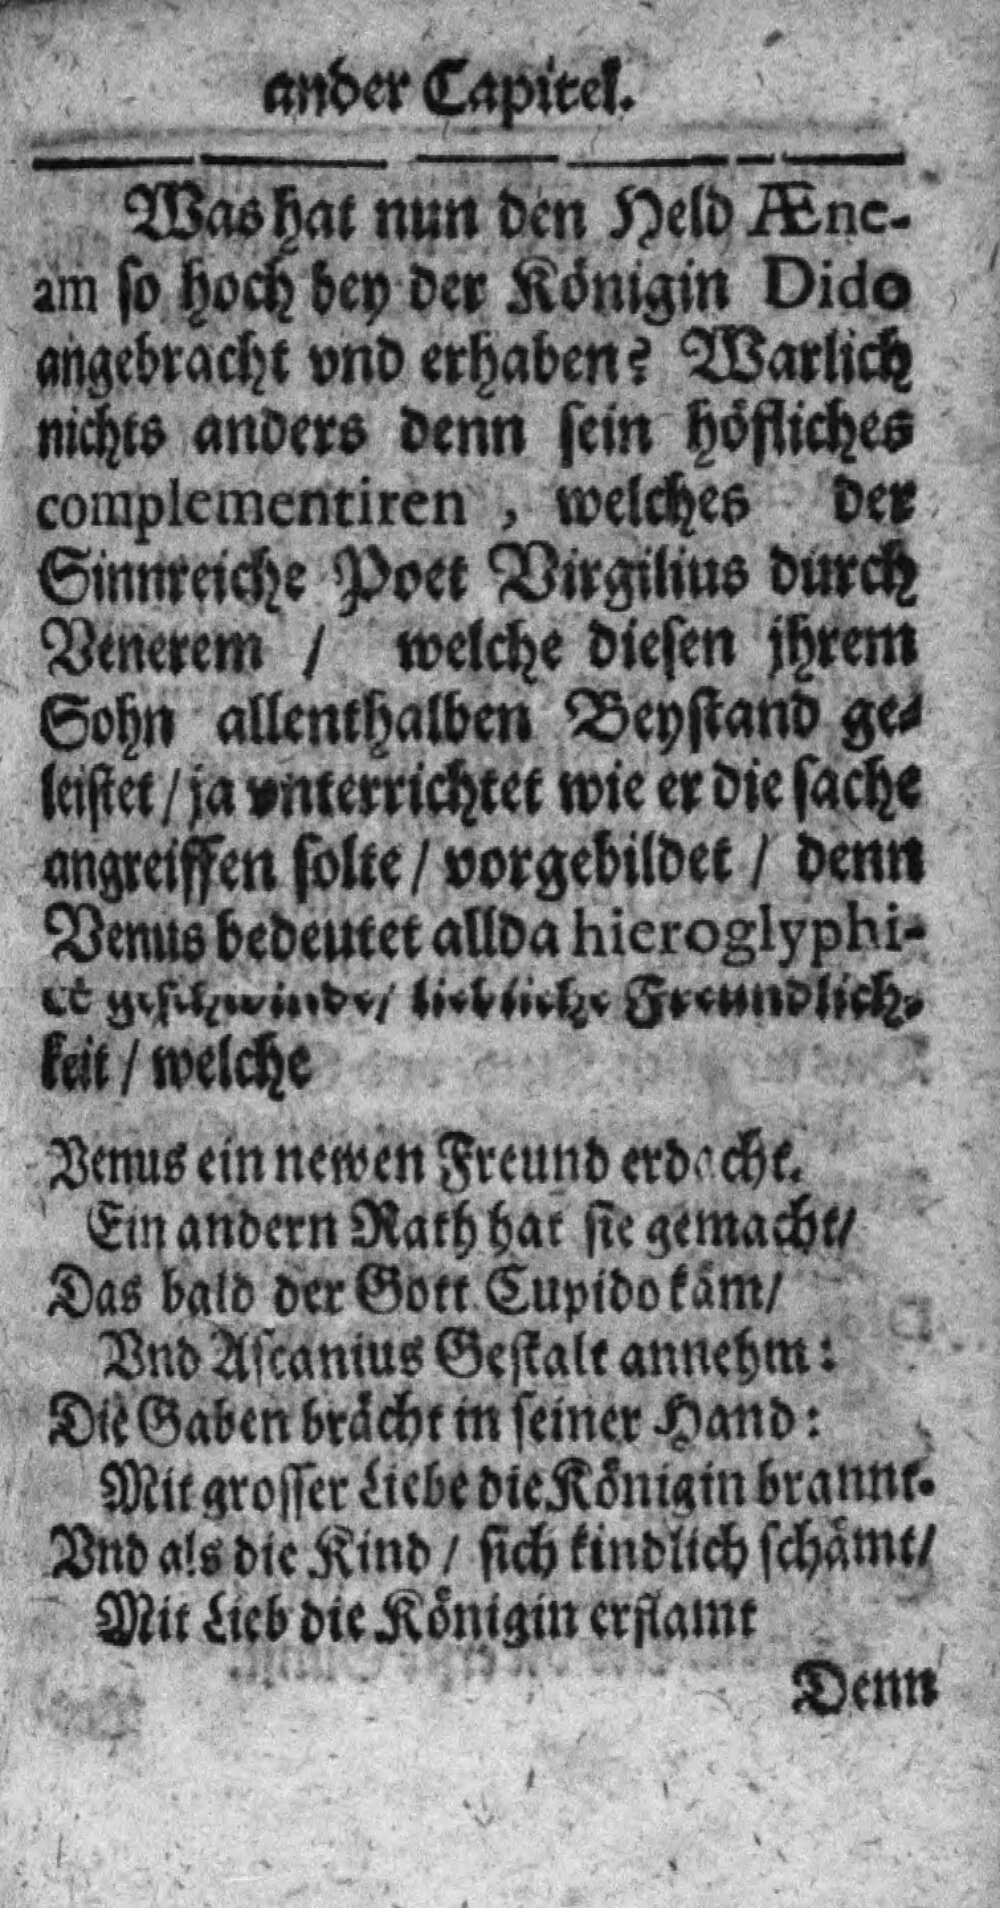 ander Capitel.
Was hat nun den Held Æne-
am so hoch bey der Königin Dido
angebracht vnd erhaben? Warlich
nichts anders denn sein höfliches
complementiren, welches der
Sinnreiche Poet Virgilius durch
Venerem / welche diesen jhrem
Sohn allenthalben Beystand ge-
leistet / ja vnterrichtet wie er die sache
angreiffen solte / vorgebildet / denn
Venus bedeutet allda hieroglyphi-
cè geschwinde / liebliche Freundlich-
keit / welche
Venus ein newen Freund erdacht.
Ein andern Rath hat sie gemacht /
Das bald der Gott Cupido käm /
Vnd Ascanius Gestalt annehm:
Die Gaben brächt in seiner Hand:
Mit grosser Liebe die Königin brannt.
Vnd als die Kind / sich kindlich schämt /
Mit Lieb die Königin erflamt
Denn